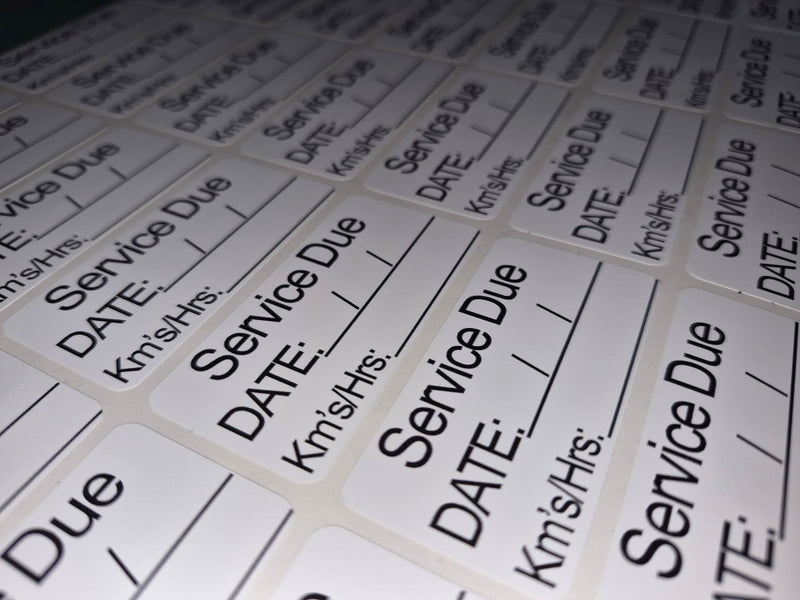 Service Due
Km's/Hrs:
Service Due
DATE: / /
Km's/Hrs:
Service Due
DATE: / /
Km's/Hrs:
Service Due
DATE: / /
Km's/Hrs:
Service Due
DATE: / /
Km's/Hrs:
Service Due
DATE: / /
Km's/Hrs:
Service Due
DATE: / /
Km's/Hrs:
Service Due
DATE: / /
Km's/Hrs:
Service Due
DATE: / /
Km's/Hrs:
Service Due
DATE:
Service Due
DATE: /
vice Due
TE: / /
m's/Hrs:
Service Due
DATE: / /
Km's/Hrs:
Service Due
DATE: / /
Km's/Hrs:
Service Due
DATE: / /
Km's/Hrs:
Service Due
DATE: / /
Due
/